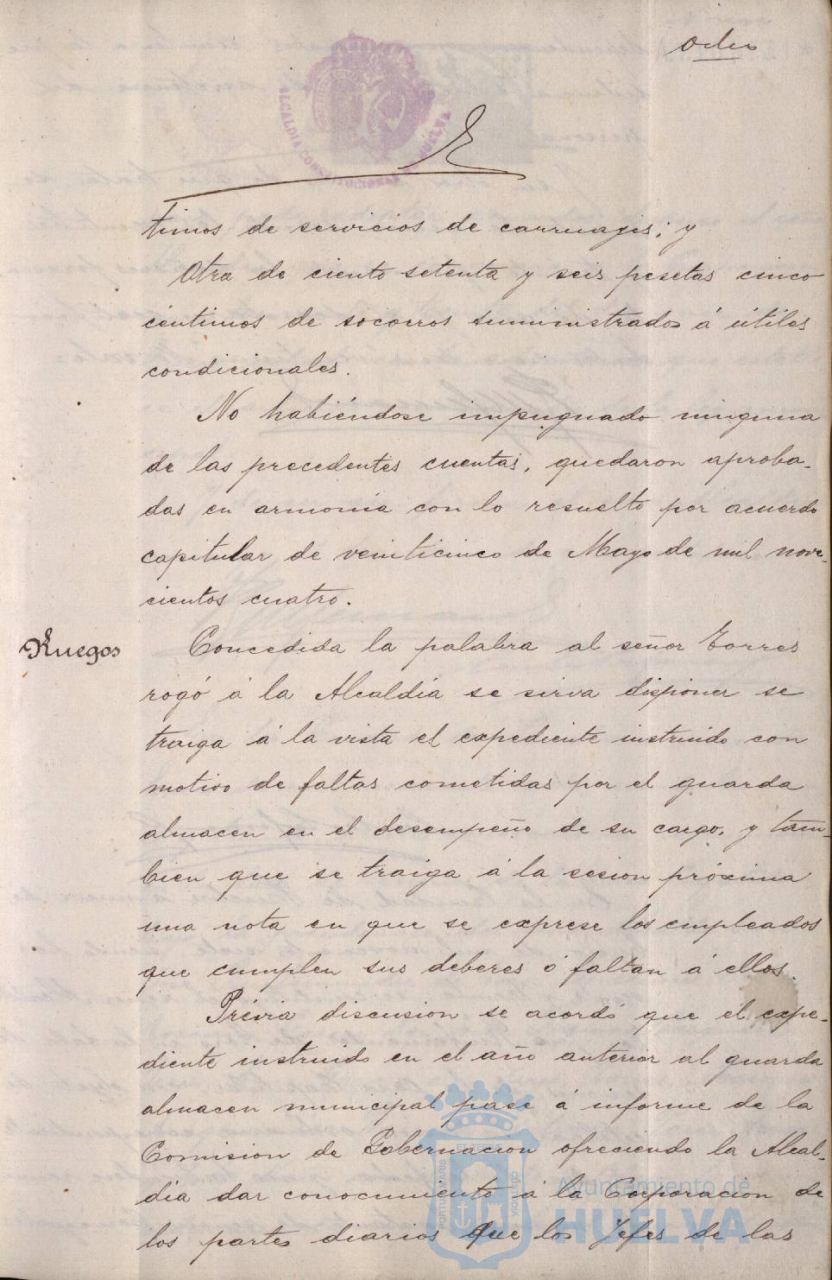 ocho
ALCALDIA CONSTITUCIONAL DE HUELVA
timos de servicios de carruajes; y
Otra de ciento setenta y seis pesetas cinco
céntimos de socorros suministrados á útiles
condicionales.
No habiéndose impugnado ninguna
de las precedentes cuentas, quedaron aproba-
das en armonía con lo resuelto por acuerdo
capitular de veinticinco de Mayo de mil nove-
cientos cuatro.
Ruegos
Concedida la palabra al señor Torres
rogó á la Alcaldía se sirva disponer se
traiga á la vista el expediente instruido con
motivo de faltas cometidas por el guarda
almacen en el desempeño de su cargo, y tam-
bien que se traiga á la sesion próxima
una nota en que se exprese los empleados
que cumplen sus deberes ó faltan á ellos.
Prévia discusion se acordó que el expe-
diente instruido en el año anterior al guarda
almacen municipal pase á informe de la
Comision de Gobernacion ofreciendo la Alcal-
día dar conocimiento á la Corporacion de
los partes diarios que los Jefes de las
Ayuntamiento de
HUELVA